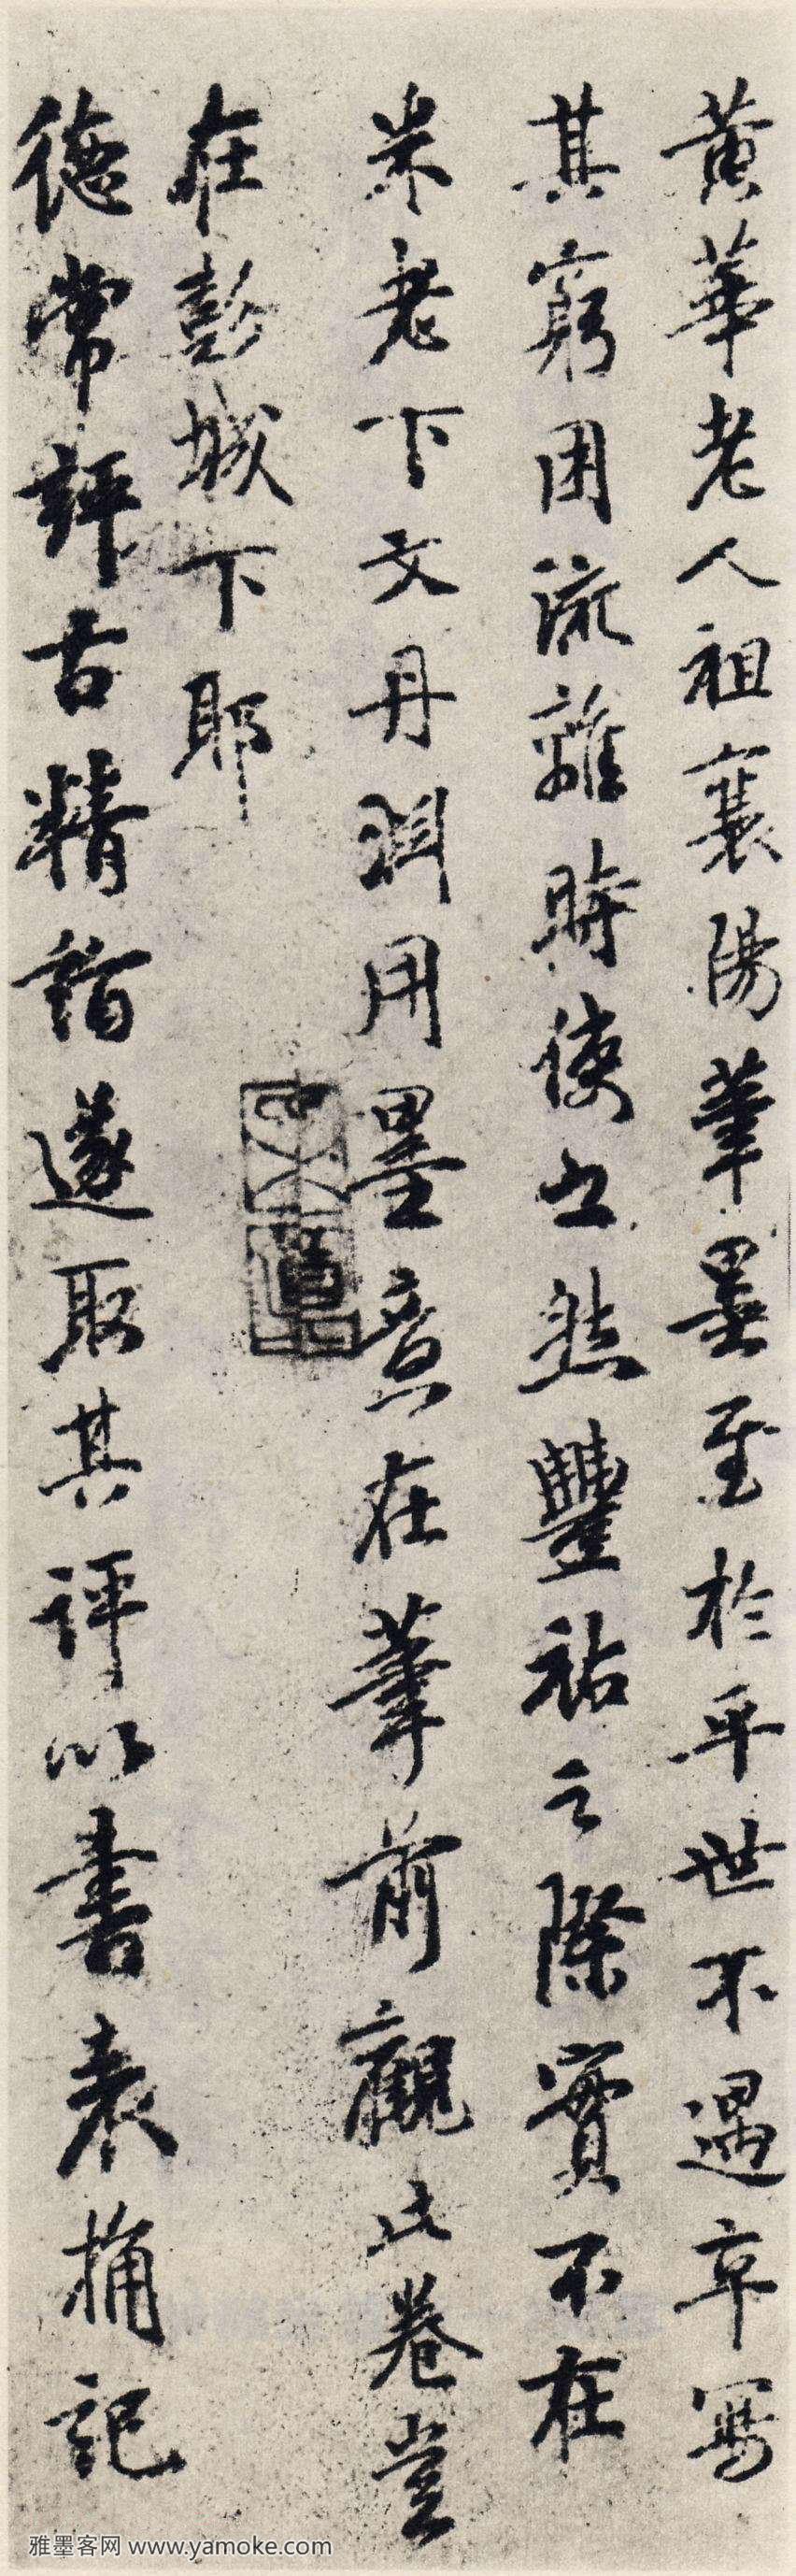 黃華老人祖襄陽筆墨至於平世不遇卒寫
其窮困流離時使之然豐祐之際實不在
米老下文丹淵用墨意在筆前觀此卷豈
在彭城下耶
德常評古精詣遂取其評以書表桷記
雅墨客网 www.yamoke.com